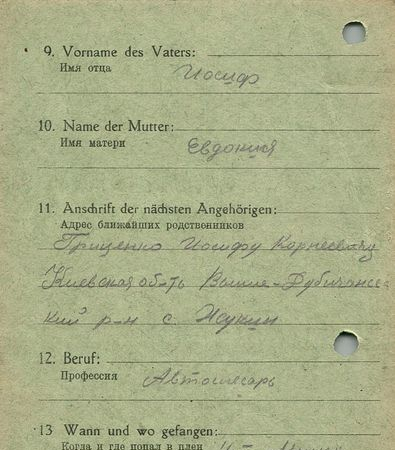 9. Vorname des Vaters:
Имя отца
Иосиф
10. Name der Mutter:
Имя матери
Евдокия
11. Anschrift der nächsten Angehörigen:
Адрес ближайших родственников
Гриценко Иосифу Корнеевичу
Киевская об-ть Выше-Дубечанс-
кий р-н с. Жукин
12. Beruf:
Профессия
Автослесарь
13 Wann und wo gefangen:
Когда и где попал в плен